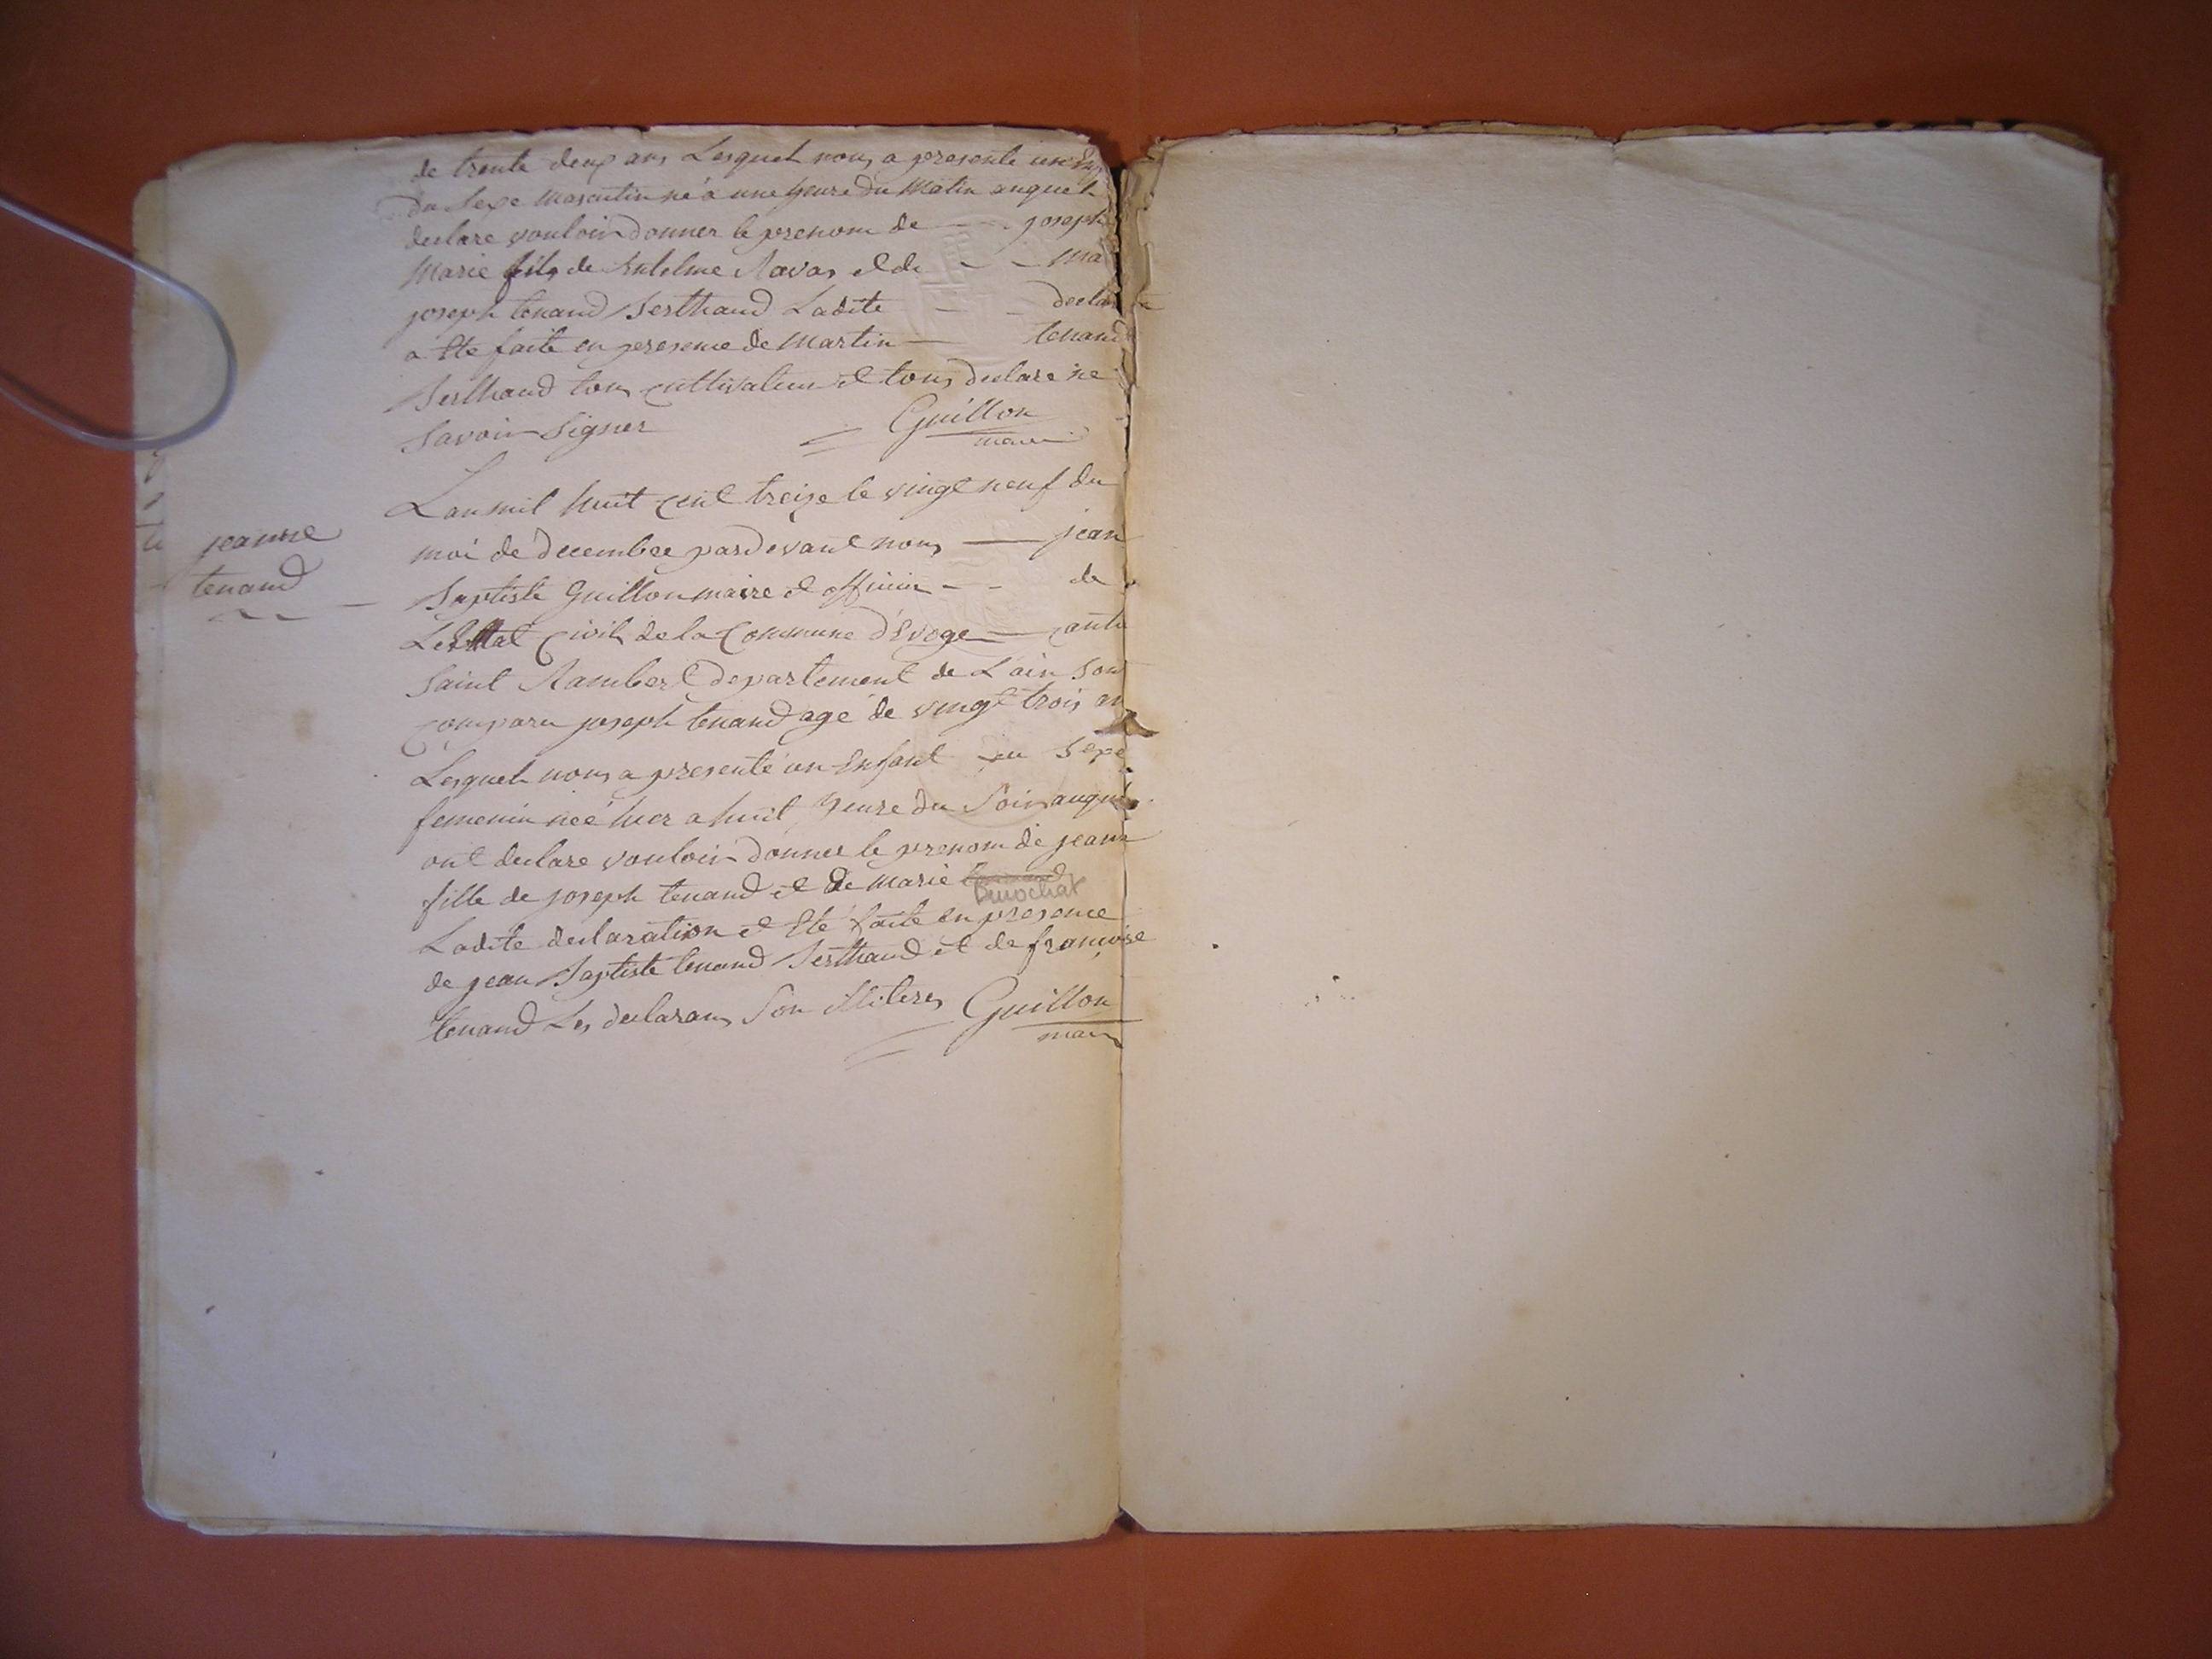 de trente deux ans Lesquel nous a presente un
du Sexe masculin né a une heure du Matin auquel
declare vouloir donner le prenom de joseph
Marie fils de Antelme Ravas et de ma
joseph tenand Berthaud Ladite decla
a Ete faite en presence de Martin tenand
Berthaud tous cultivateur et tous declare ne
Savoir Signer Guillon
maire
Lan mil huit cent treize le vingt neuf du
moi de decembre pardevant nous jean
jeanne
tenand
Baptiste Guillon maire et officier de
Lettat Civil de la Commune d'Evoge
Saint Rambert departement de L'ain Sont
comparu joseph tenand agé de vingt trois an
Lesquel nous a presenté un Enfant du Sexe
femenin neé hier a huit heure du Soir
ont declare vouloir donner le prenom de jeanne
fille de joseph tenand et de Marie
Ladite declaration et Eté faite en presence
de jean Baptiste tenand Berthaud et de françoise
tenand Les declarans Son illiteres Guillon
maire